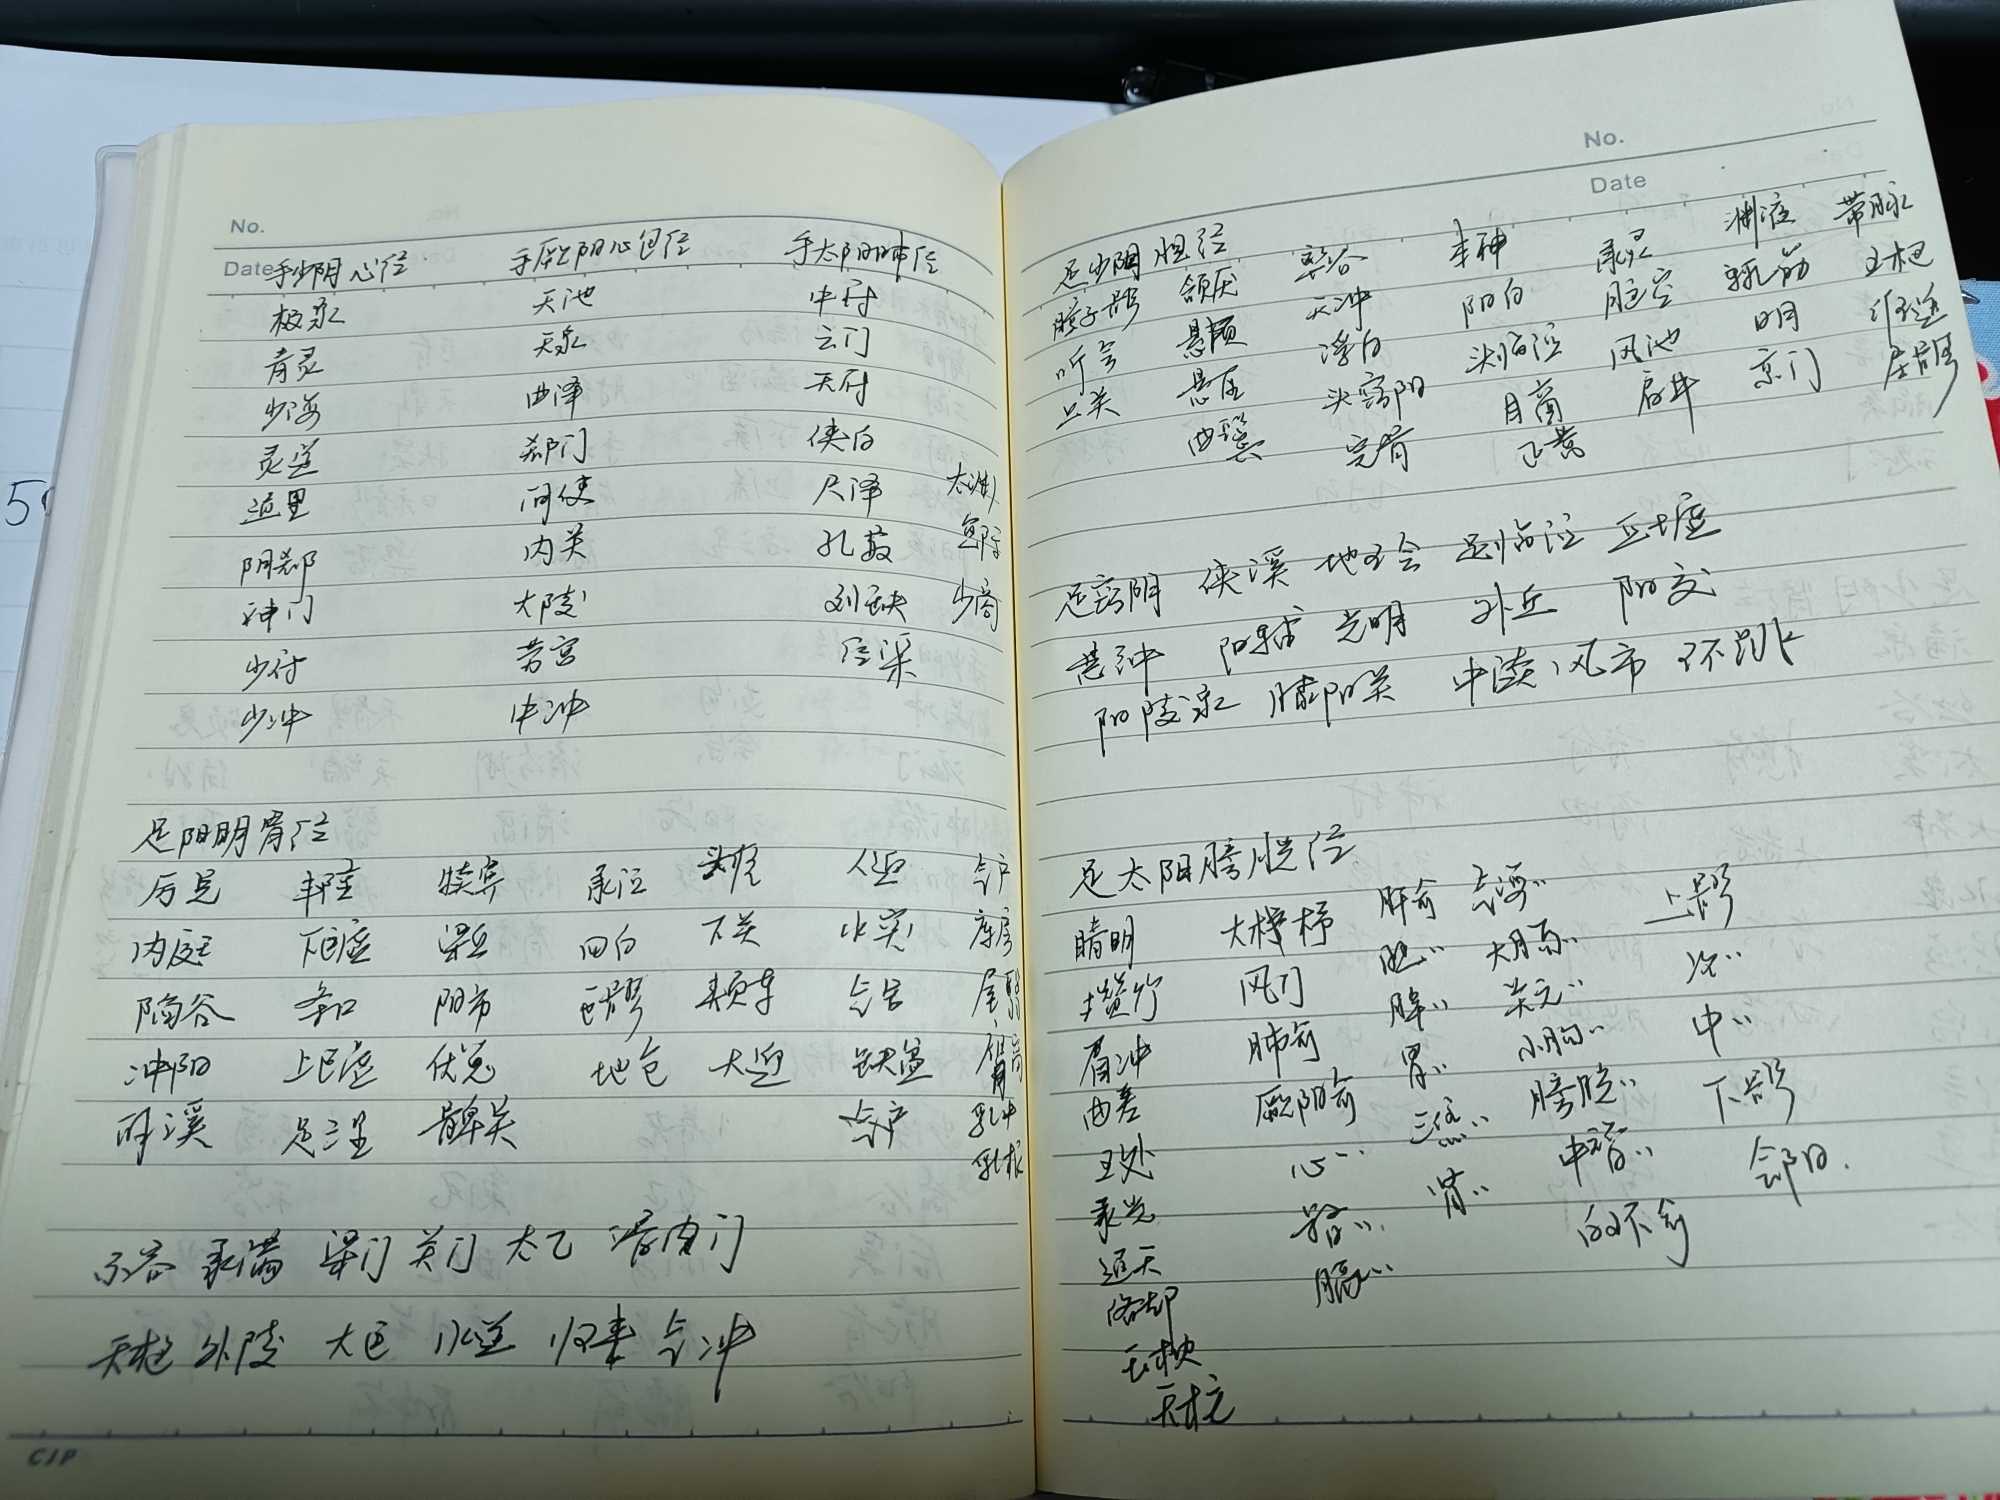 No.
Date 手少阴心经 手厥阴心包经 手太阴肺经
极泉 天池 中府
青灵 天泉 云门
少海 曲泽 天府
灵道 郄门 侠白
通里 间使 尺泽 太渊
阴郄 内关 孔最 鱼际
神门 大陵 列缺 少商
少府 劳宫 经渠
少冲 中冲
足阳明胃经
厉兑 丰隆 犊鼻 承泣 头维 人迎 气户
内庭 下巨虚 梁丘 四白 下关 水突 库房
陷谷 条口 阳市 巨髎 颊车 气舍 屋翳
冲阳 上巨虚 伏兔 地仓 大迎 缺盆 膺窗
解溪 足三里 髀关 气户 乳中
乳根
不容 承满 梁门 关门 太乙 滑肉门
天枢 外陵 大巨 水道 归来 气冲
CIP
No.
Date
足少阳胆经 率谷 本神 承灵 渊液 带脉
瞳子髎 颔厌 天冲 阳白 脑空 辄筋 五枢
听会 悬颅 浮白 头临泣 风池 日月 维道
上关 悬厘 头窍阴 目窗 肩井 京门 居髎
曲鬓 完骨 正营
足窍阴 侠溪 地五会 足临泣 丘墟
悬冲 阳辅 光明 外丘 阳交
阳陵泉 膝阳关 中渎 风市 环跳
足太阳膀胱经
睛明 大杼 肝俞 气海〃 上髎
攒竹 风门 胆〃 大肠〃 次〃
眉冲 肺俞 脾〃 关元〃 中〃
曲差 厥阴俞 胃〃 小肠〃 下髎
五处 心〃 三焦〃 膀胱〃 会阳.
承光 督〃 肾〃 中膂〃
通天 膈〃 白环俞
络却
玉枕
天柱